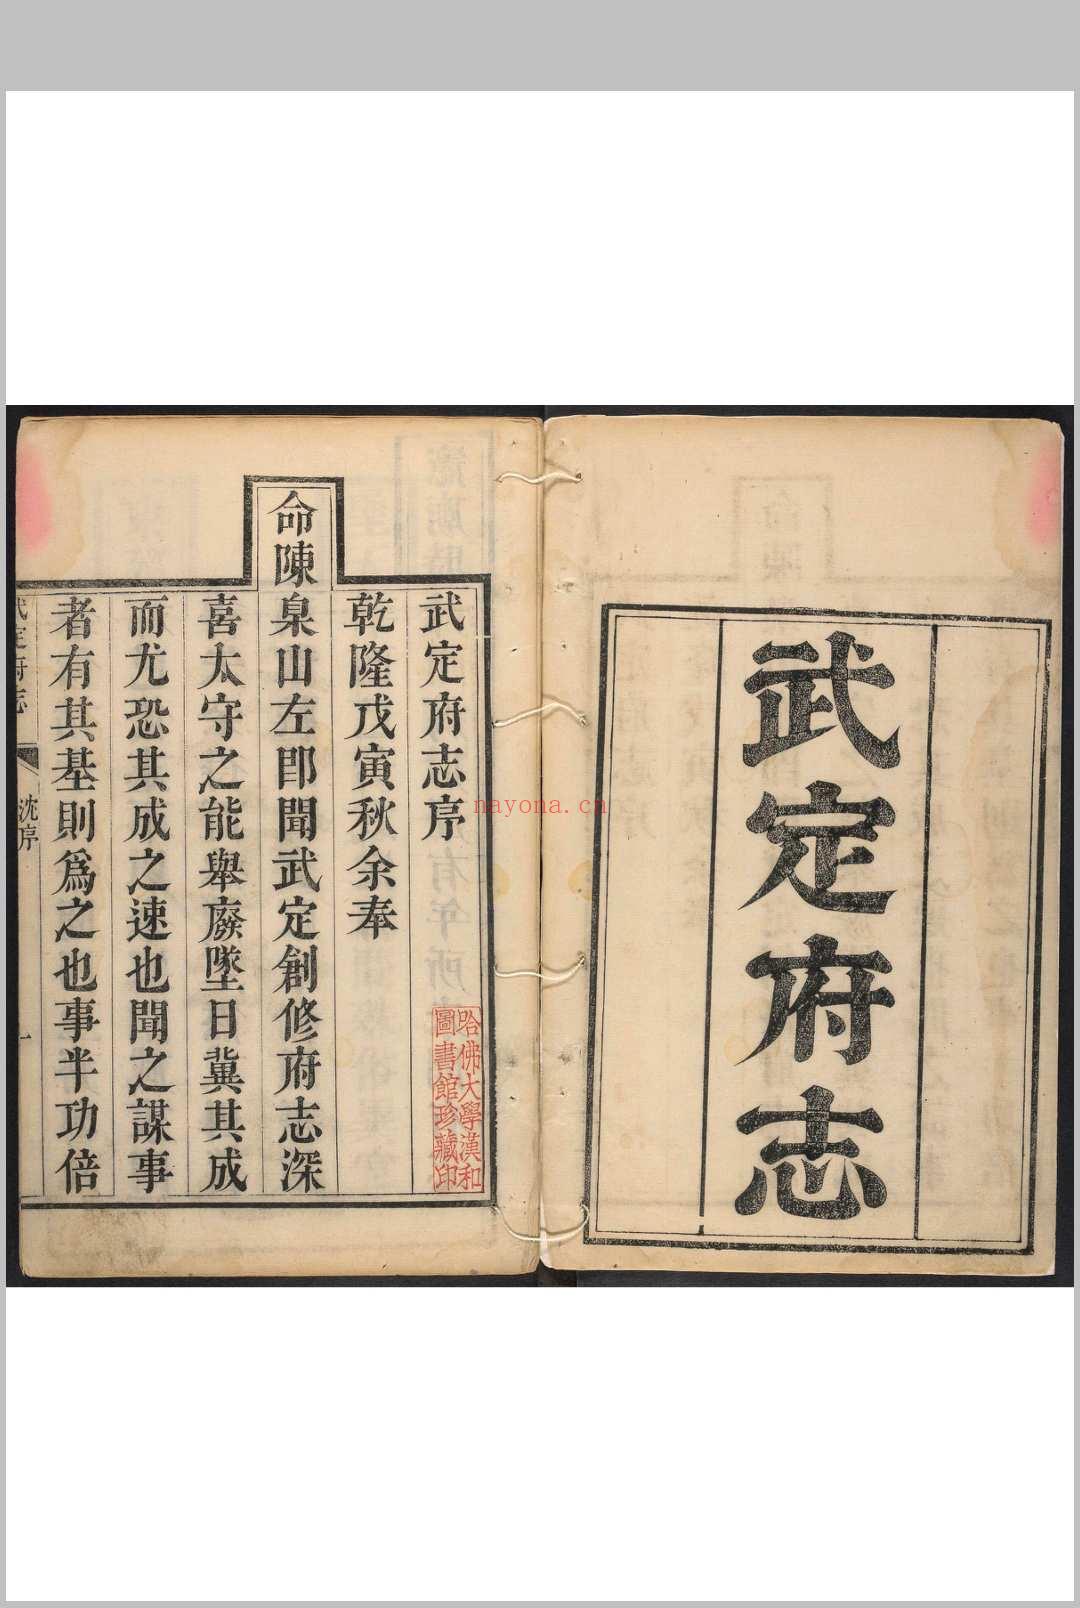 武定府志
武定府志序
乾隆戊寅秋余奉
命陳臬山左卽聞武定創修府志深
喜太守之能舉廢墜日冀其成
而尤恐其成之速也聞之謀事
者有其基則爲之也事半功倍
武定府志
沈序
一
哈佛大學漢和
圖書館珍藏印
nayona.cn